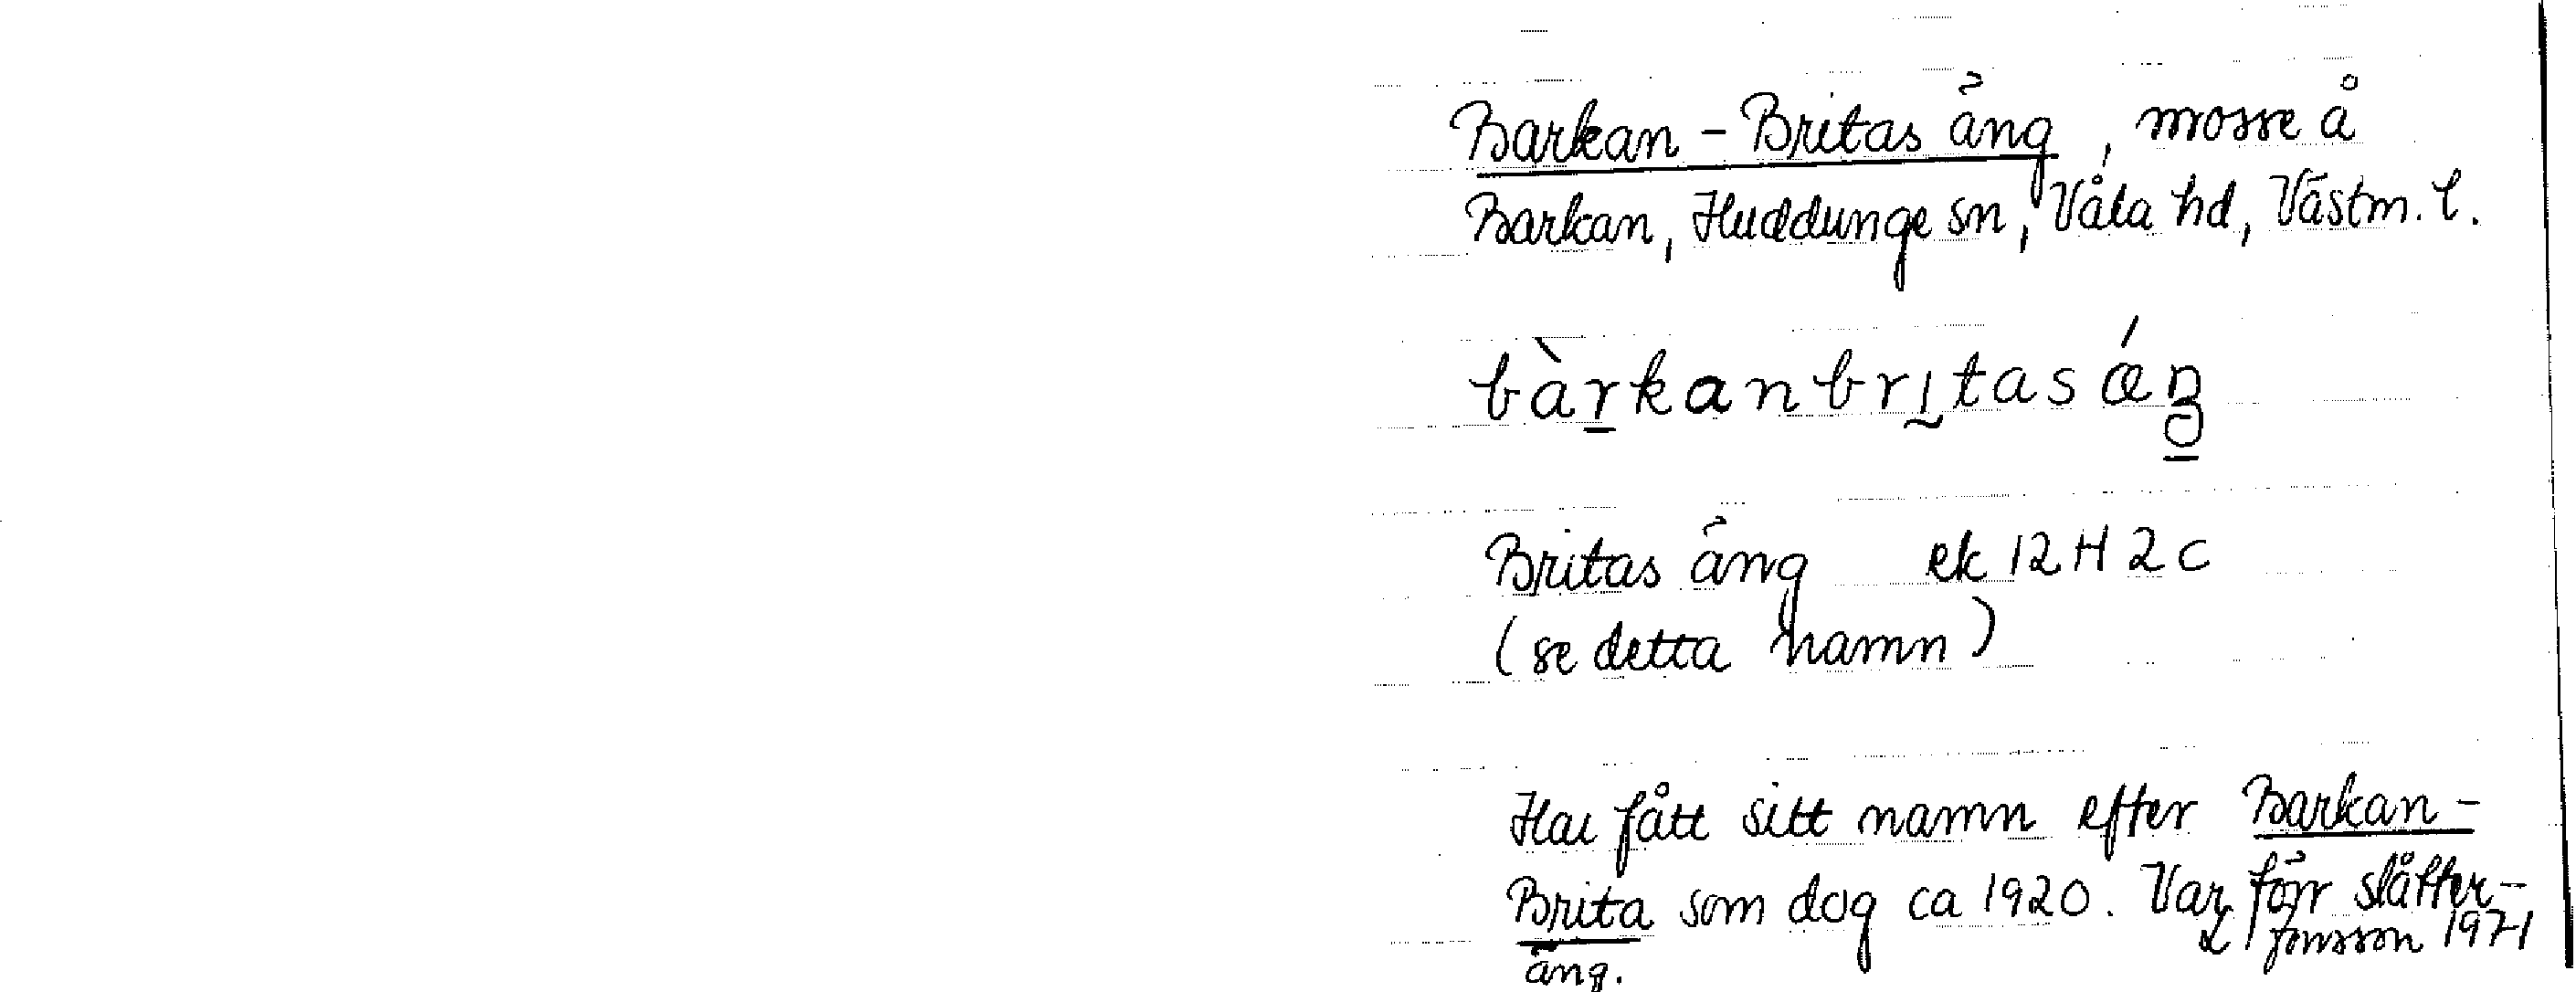 Barkan-Britas äng, mosse å
Barkan, Huddunge sn, Våla hd, Västm. l.
bàrkanbritasǽŋ
Britas äng ek 12H 2c
(se detta namn)
Har fått sitt namn efter Barkan-
Brita som dog ca 1920. Var förr slåtter-
äng.
L Jonsson 1971